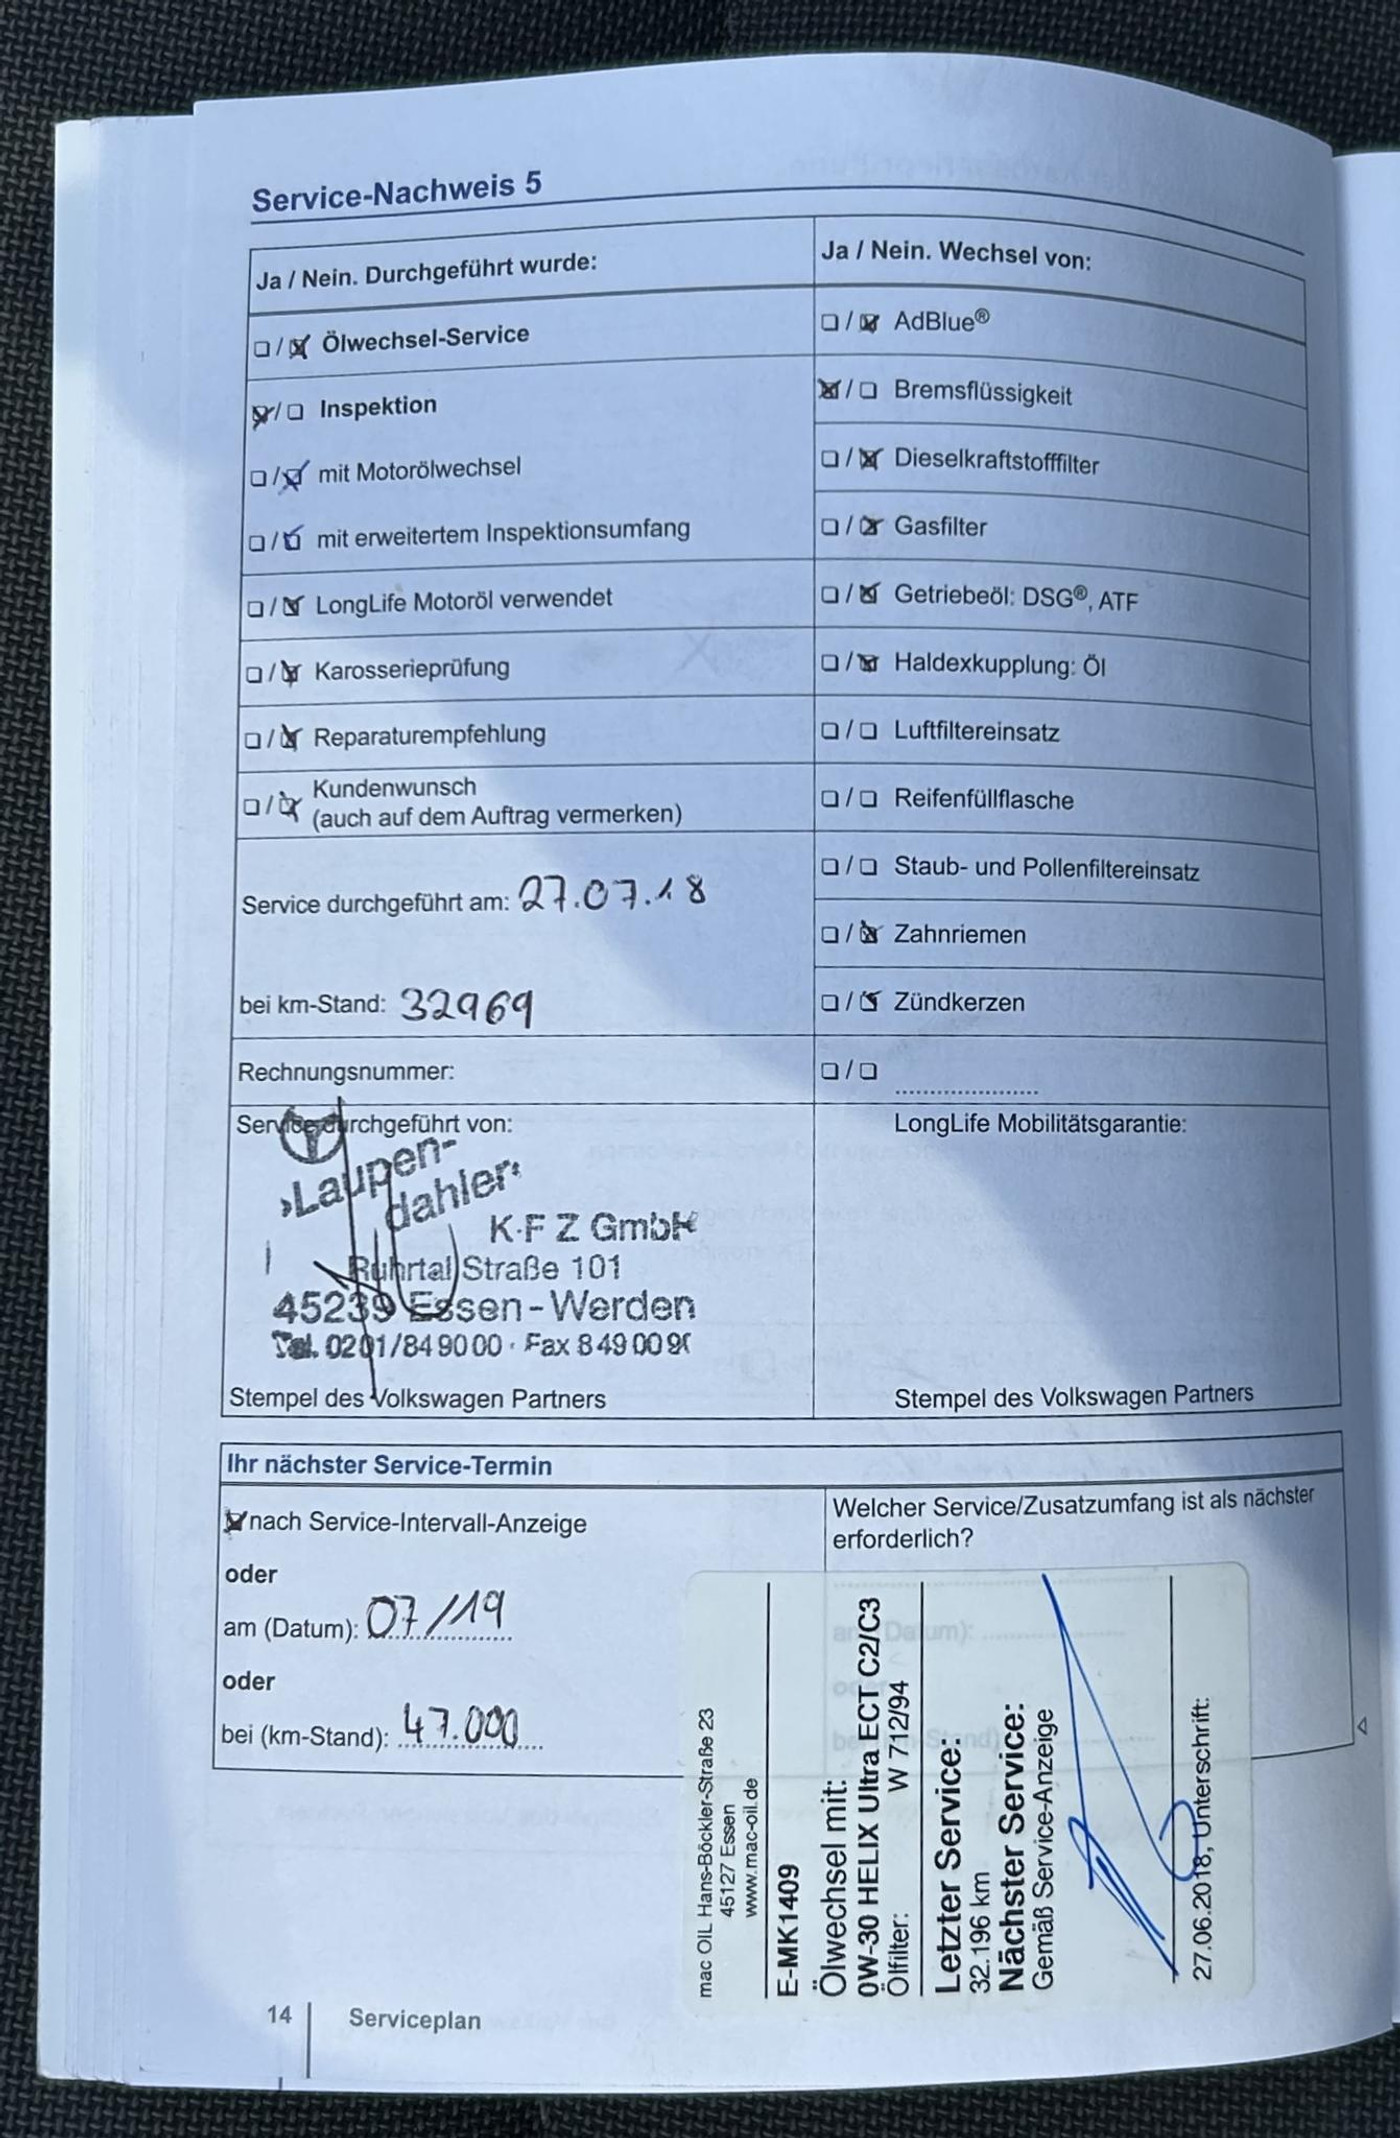 Service-Nachweis 5
Ja / Nein. Durchgeführt wurde:
☐ / ☒ Ölwechsel-Service
☒ / ☐ Inspektion
☐ / ☒ mit Motorölwechsel
☐ / ☒ mit erweitertem Inspektionsumfang
☐ / ☒ LongLife Motoröl verwendet
☐ / ☒ Karosserieprüfung
☐ / ☒ Reparaturempfehlung
☐ / ☒ Kundenwunsch
(auch auf dem Auftrag vermerken)
Service durchgeführt am: 27.07.18
bei km-Stand: 32969
Rechnungsnummer:
Service durchgeführt von:
›Laupen-
dahler‹
K·F Z GmbH
Ruhrtal Straße 101
45239 Essen-Werden
Tel. 0201/84 90 00 · Fax 8 49 00 90
Stempel des Volkswagen Partners
Ja / Nein. Wechsel von:
☐ / ☒ AdBlue®
☒ / ☐ Bremsflüssigkeit
☐ / ☒ Dieselkraftstofffilter
☐ / ☒ Gasfilter
☐ / ☒ Getriebeöl: DSG®, ATF
☐ / ☒ Haldexkupplung: Öl
☐ / ☐ Luftfiltereinsatz
☐ / ☐ Reifenfüllflasche
☐ / ☐ Staub- und Pollenfiltereinsatz
☐ / ☒ Zahnriemen
☐ / ☒ Zündkerzen
☐ / ☐ ....................
LongLife Mobilitätsgarantie:
Stempel des Volkswagen Partners
Ihr nächster Service-Termin
☒ nach Service-Intervall-Anzeige
oder
am (Datum): 07/19
oder
bei (km-Stand): 47.000
Welcher Service/Zusatzumfang ist als nächster
erforderlich?
am (Datum): ....................
oder
bei (km-Stand)
mac OIL Hans-Böckler-Straße 23
45127 Essen
www.mac-oil.de
E-MK1409
Ölwechsel mit:
0W-30 HELIX Ultra ECT C2/C3
Ölfilter: W 712/94
Letzter Service:
32.196 km
Nächster Service:
Gemäß Service-Anzeige
27.06.2018, Unterschrift:
14 | Serviceplan